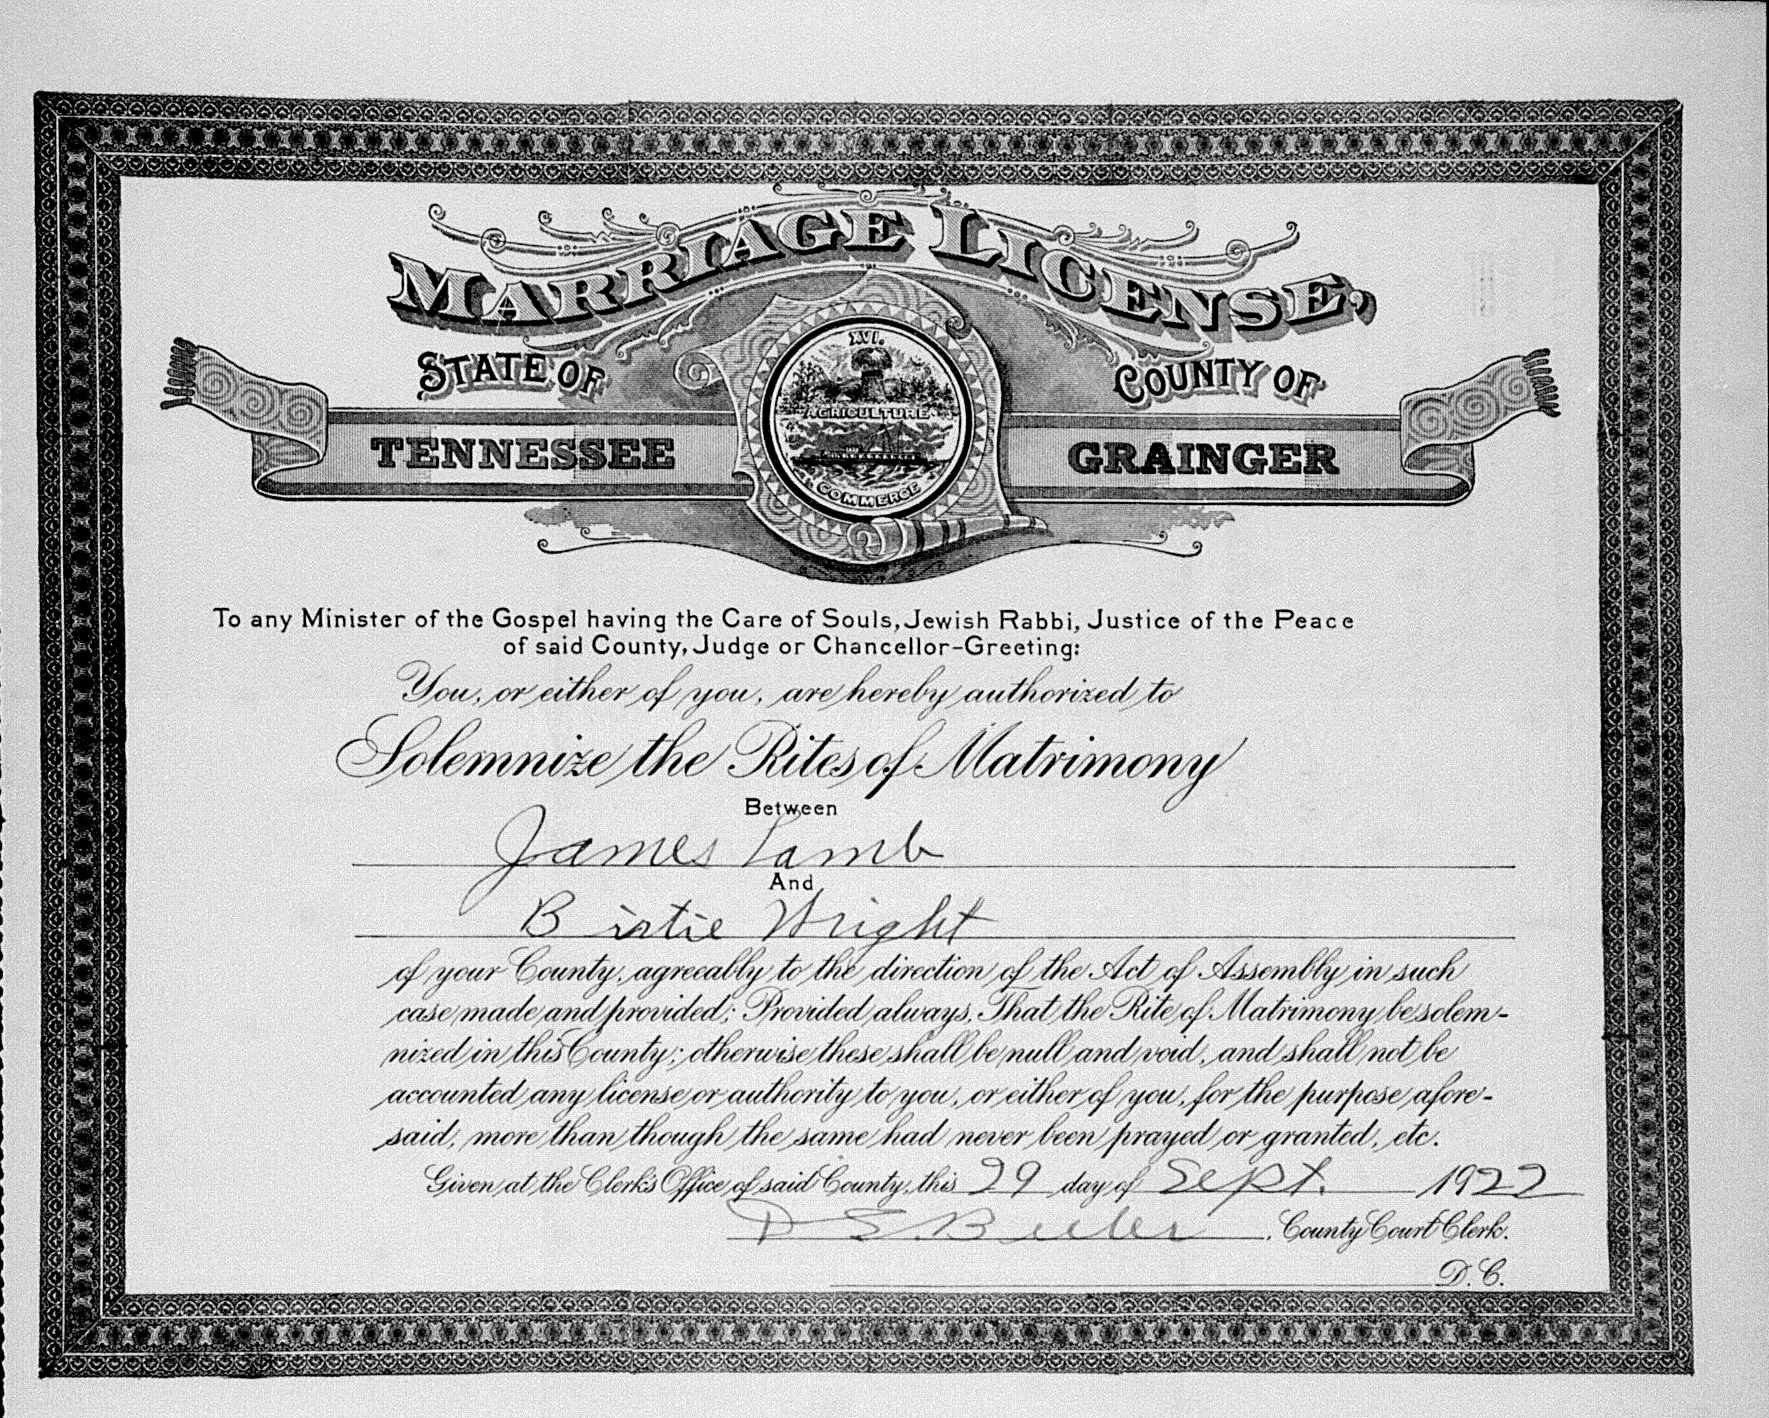 MARRIAGE LICENSE,
STATE OF
COUNTY OF
TENNESSEE
GRAINGER
XVI.
AGRICULTURE
COMMERCE
To any Minister of the Gospel having the Care of Souls, Jewish Rabbi, Justice of the Peace
of said County, Judge or Chancellor-Greeting:
You, or either of you, are hereby authorized to
Solemnize the Rites of Matrimony
Between
James Lamb
And
Birtie Wright
of your County, agreeably to the direction of the Act of Assembly in such
case made and provided; Provided always, That the Rite of Matrimony be solem-
nized in this County; otherwise these shall be null and void, and shall not be
accounted any license or authority to you, or either of you, for the purpose afore-
said, more than though the same had never been prayed or granted, etc.
Given at the Clerk's Office of said County, this 29 day of Sept. 1922
D E. Beeler, County Court Clerk.
D. C.